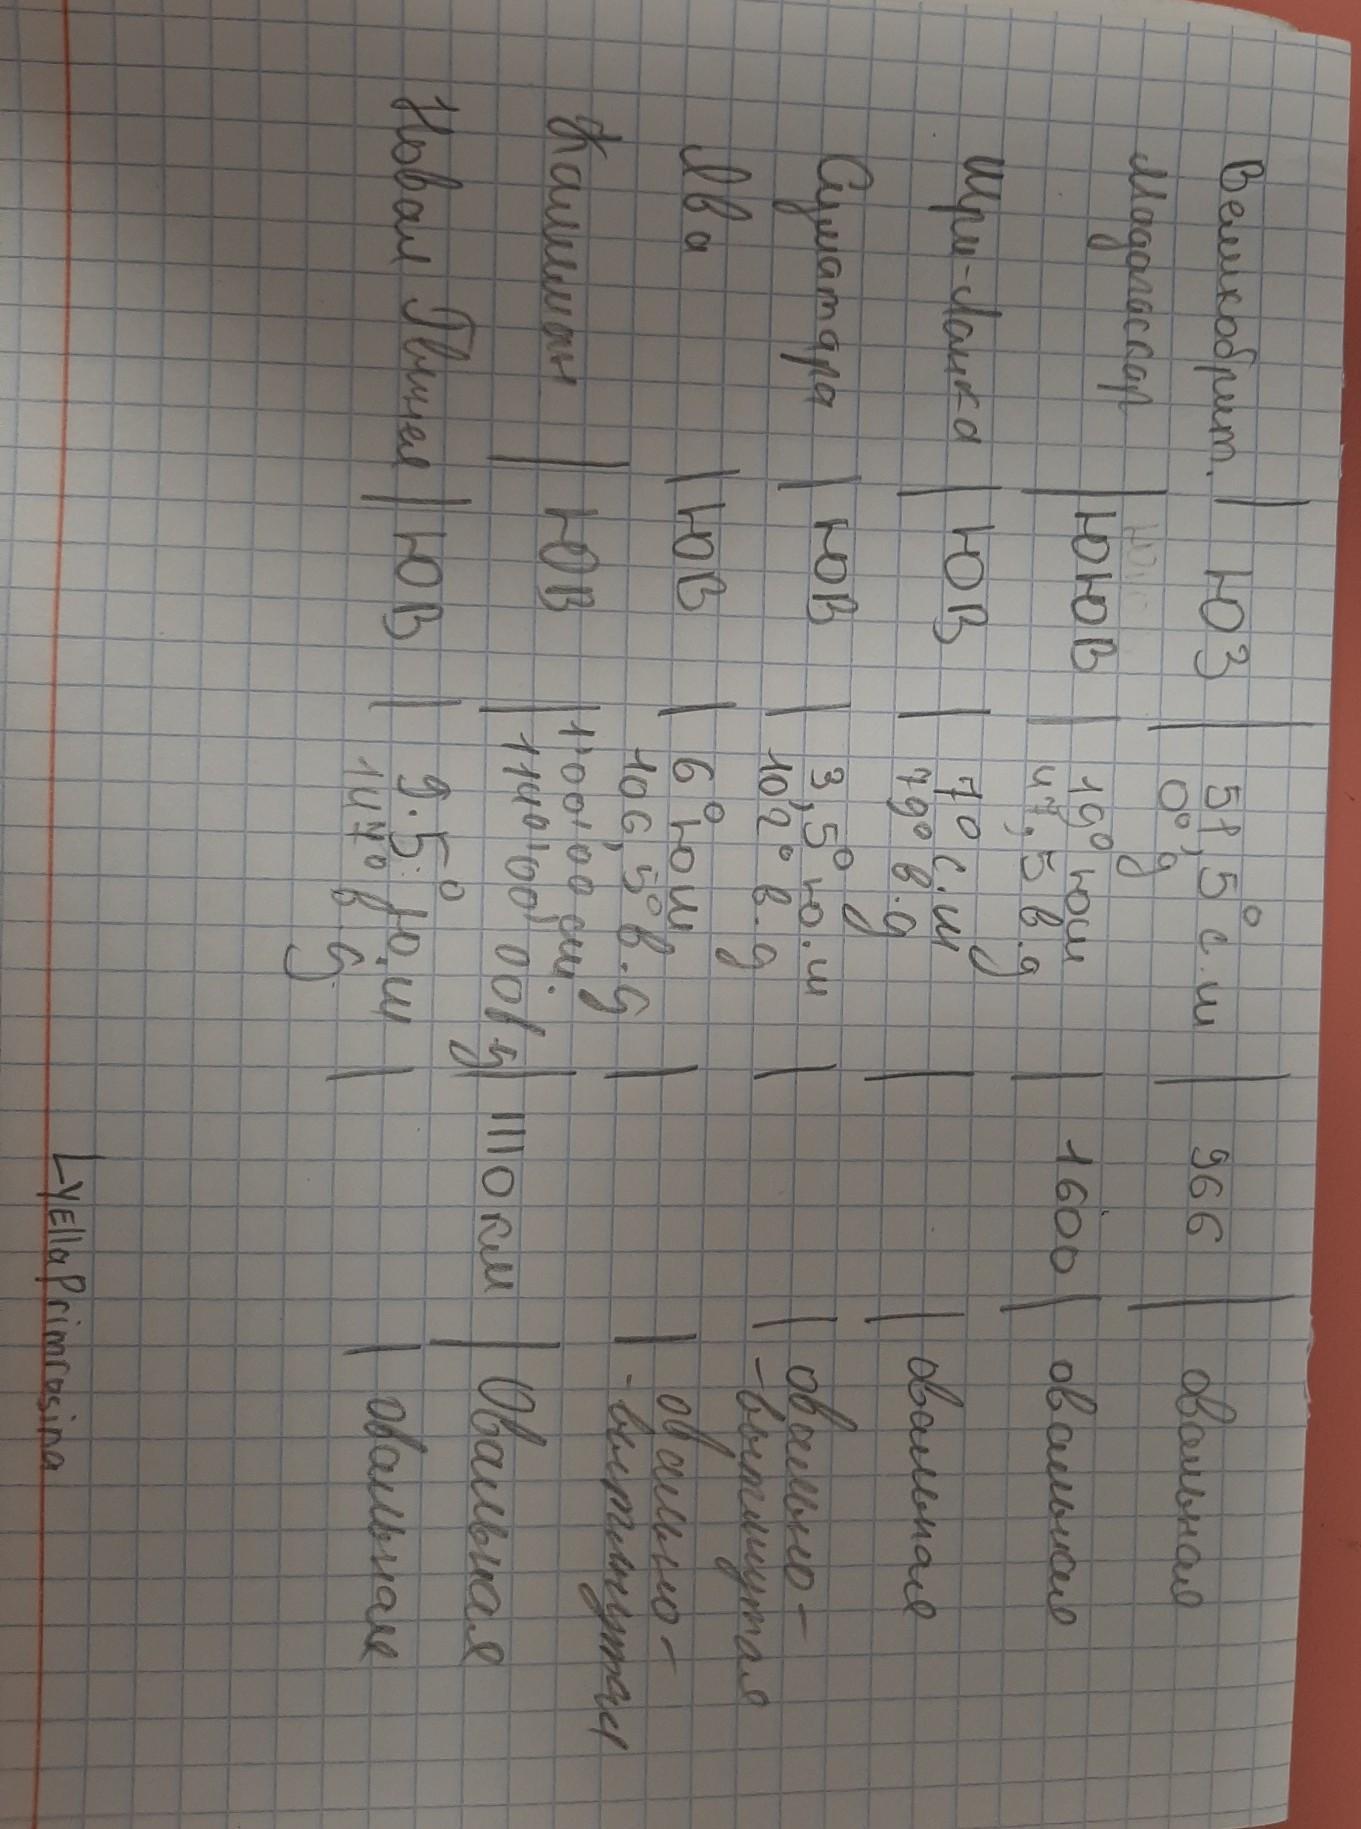 Великобрит. | ЮЗ | 51,5° с.ш | 966 | овальная
0° д
Мадагаскар | ЮЮВ | 19° юш | 1600 | овальная
47,5 в.д
Шри-Ланка | ЮВ | 7° с.ш | | овальная
79° в.д
Суматра | ЮВ | 3,5° ю.ш | | овально-
102° в.д -вытянутая
Ява | ЮВ | 6° юш | | овально-
106,5° в.д -вытянутая
Калиман | ЮВ | 1°00'00 сш. | 1110 км | Овальная
114°00'00 вд
Новая Гвинея | ЮВ | 9.5° ю.ш | | овальная
147° в д.
LYEllaPrimrosina